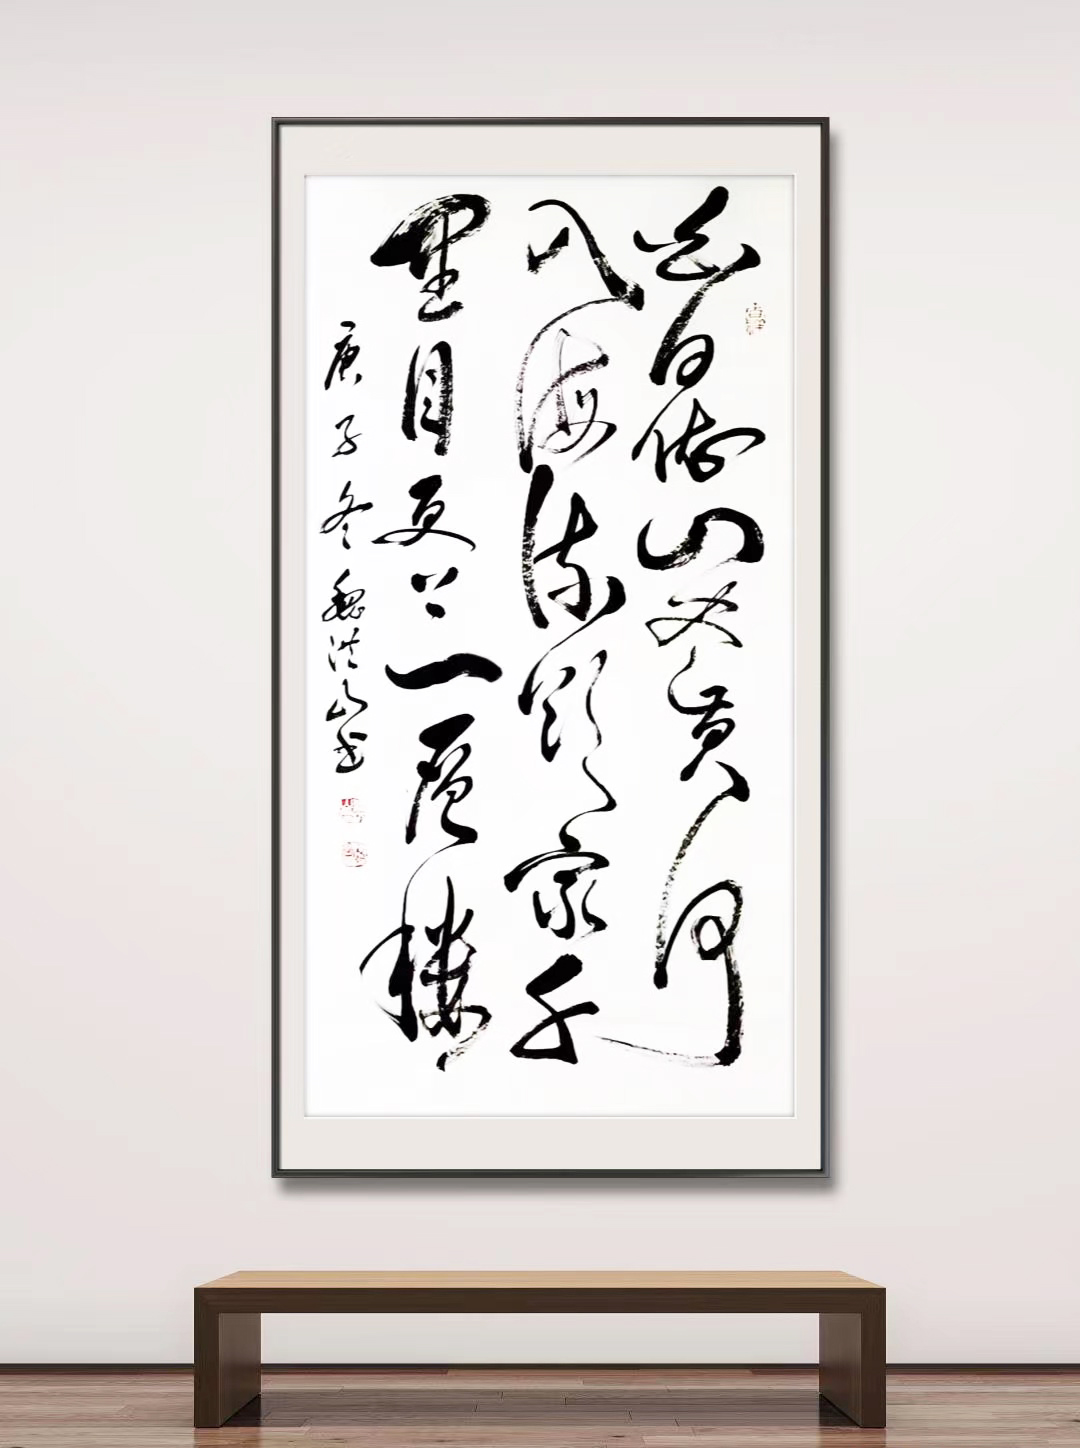 白日依山盡黄河
入海流欲窮千
里目更上一層樓
庚子冬魏洪山书